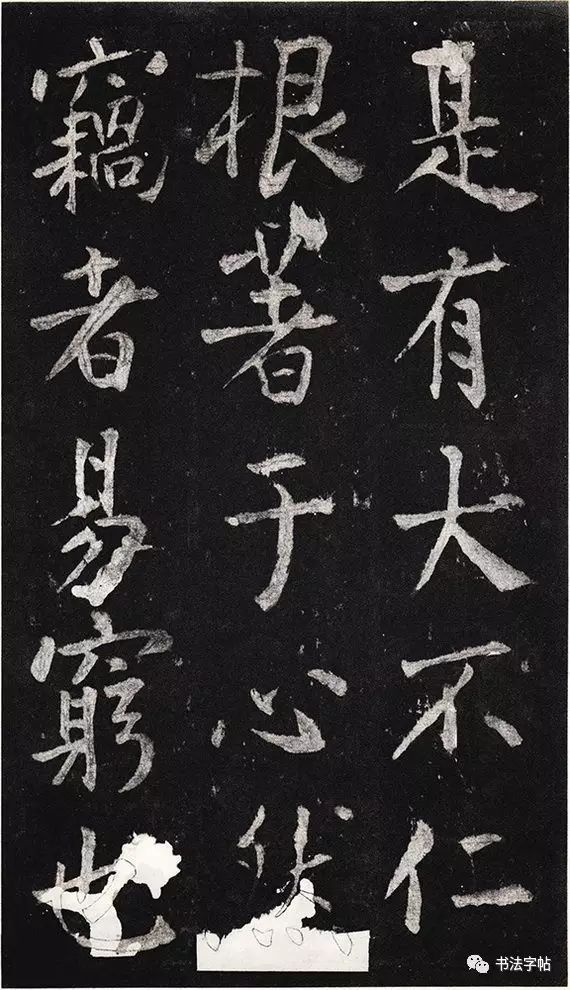 是有大不仁
根著于心然
竊者易窮也
书法字帖